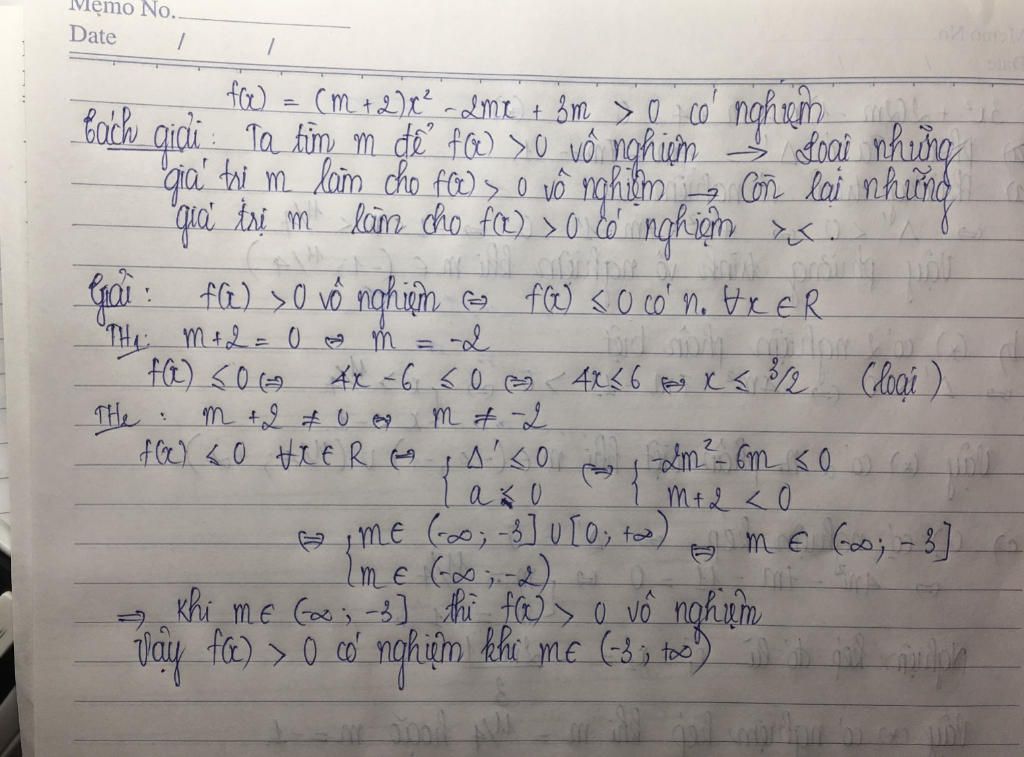 Memo No.
Date / /
f(x) = (m+2)x² - 2mx + 3m > 0 có nghiệm
Cách giải: Ta tìm m để f(x) > 0 vô nghiệm → Loại những
giá trị m làm cho f(x) > 0 vô nghiệm → Còn lại những
giá trị m làm cho f(x) > 0 có nghiệm >.<.
Giải: f(x) > 0 vô nghiệm ⇔ f(x) ≤ 0 có n. ∀x ∈ R
TH1: m+2 = 0 ⇔ m = -2
f(x) ≤ 0 ⇔ 4x - 6 ≤ 0 ⇔ 4x ≤ 6 ⇔ x ≤ 3/2 (loại)
TH2: m+2 ≠ 0 ⇔ m ≠ -2
f(x) ≤ 0 ∀x ∈ R ⇔ { Δ' ≤ 0 ⇔ { -2m² - 6m ≤ 0
a < 0 m+2 < 0
⇔ { m ∈ (-∞; -3] ∪ [0; +∞) ⇔ m ∈ (-∞; -3]
m ∈ (-∞; -2)
⇒ Khi m ∈ (-∞; -3] thì f(x) > 0 vô nghiệm
Vậy f(x) > 0 có nghiệm khi m ∈ (-3; +∞)